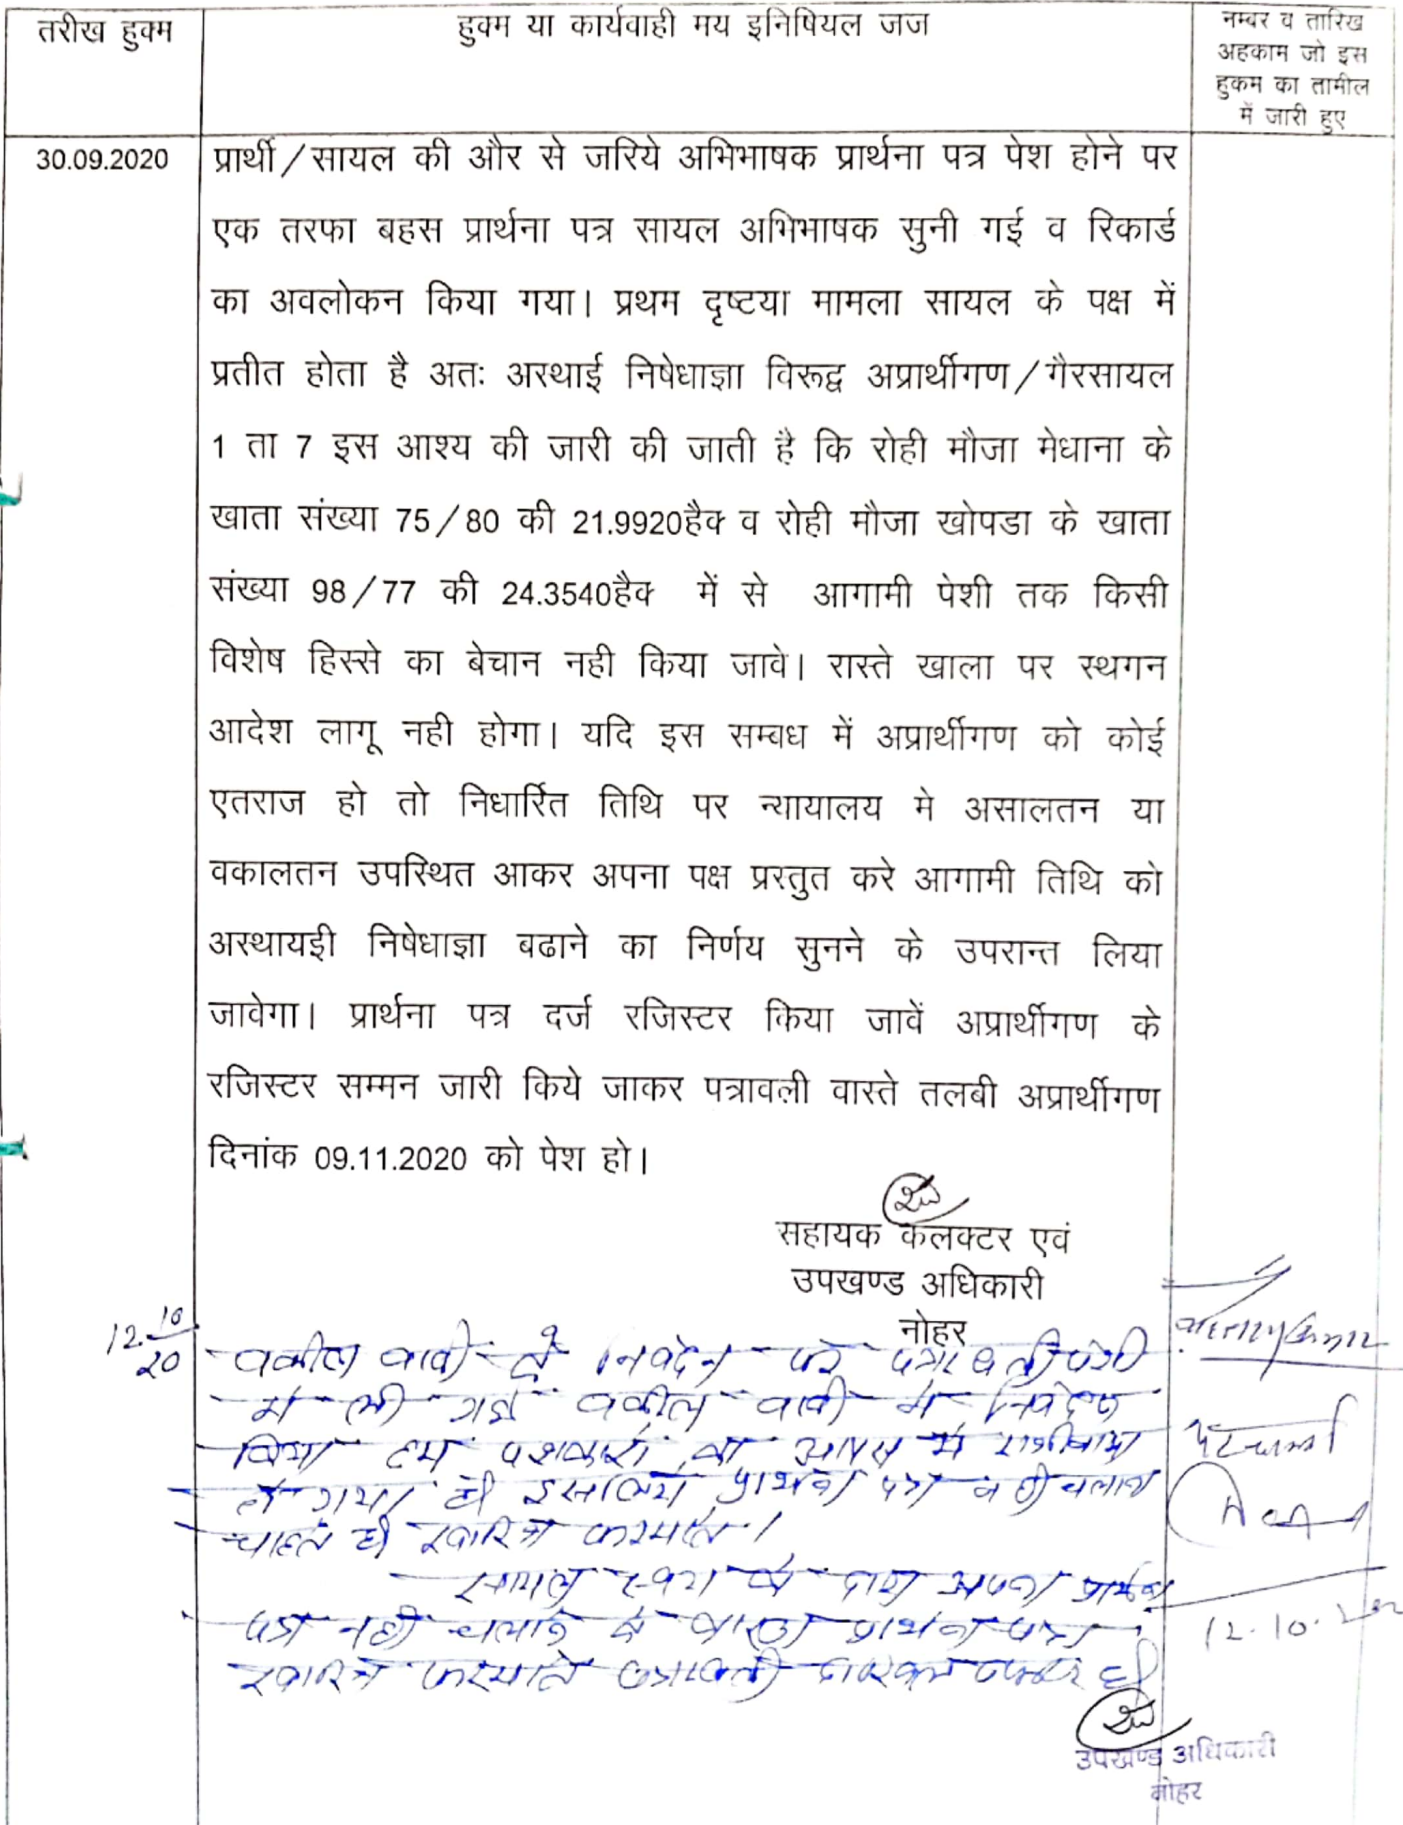 तरीख हुक्म
हुक्म या कार्यवाही मय इनिषियल जज
नम्बर व तारिख
अहकाम जो इस
हुकम का तामील
में जारी हुए
30.09.2020
प्रार्थी/सायल की और से जरिये अभिभाषक प्रार्थना पत्र पेश होने पर
एक तरफा बहस प्रार्थना पत्र सायल अभिभाषक सुनी गई व रिकार्ड
का अवलोकन किया गया। प्रथम दृष्टया मामला सायल के पक्ष में
प्रतीत होता है अतः अस्थाई निषेधाज्ञा विरूद्व अप्रार्थीगण/गैरसायल
1 ता 7 इस आश्य की जारी की जाती है कि रोही मौजा मेधाना के
खाता संख्या 75/80 की 21.9920हैक व रोही मौजा खोपडा के खाता
संख्या 98/77 की 24.3540हैक में से आगामी पेशी तक किसी
विशेष हिस्से का बेचान नही किया जावे। रास्ते खाला पर स्थगन
आदेश लागू नही होगा। यदि इस सम्बध में अप्रार्थीगण को कोई
एतराज हो तो निधार्रित तिथि पर न्यायालय मे असालतन या
वकालतन उपस्थित आकर अपना पक्ष प्रस्तुत करे आगामी तिथि को
अस्थायइी निषेधाज्ञा बढाने का निर्णय सुनने के उपरान्त लिया
जावेगा। प्रार्थना पत्र दर्ज रजिस्टर किया जावें अप्रार्थीगण के
रजिस्टर सम्मन जारी किये जाकर पत्रावली वास्ते तलबी अप्रार्थीगण
दिनांक 09.11.2020 को पेश हो।
सहायक कलक्टर एवं
उपखण्ड अधिकारी
नोहर
12.10
20
वकील वादी के निवेदन पर पत्रावली पेशी
में ली गई वकील वादी ने निवेदन
किया हम पक्षकारों का आपस में राजीनामा
हो गया है इसलिये प्रार्थना पत्र नही चलाना
चाहते है खारिज फरमावे।
सायल स्वयं के द्वारा अपना प्रार्थना
पत्र नही चलाने के कारण प्रार्थना पत्र
खारिज
12.10.2020
उपखण्ड अधिकारी
नोहर